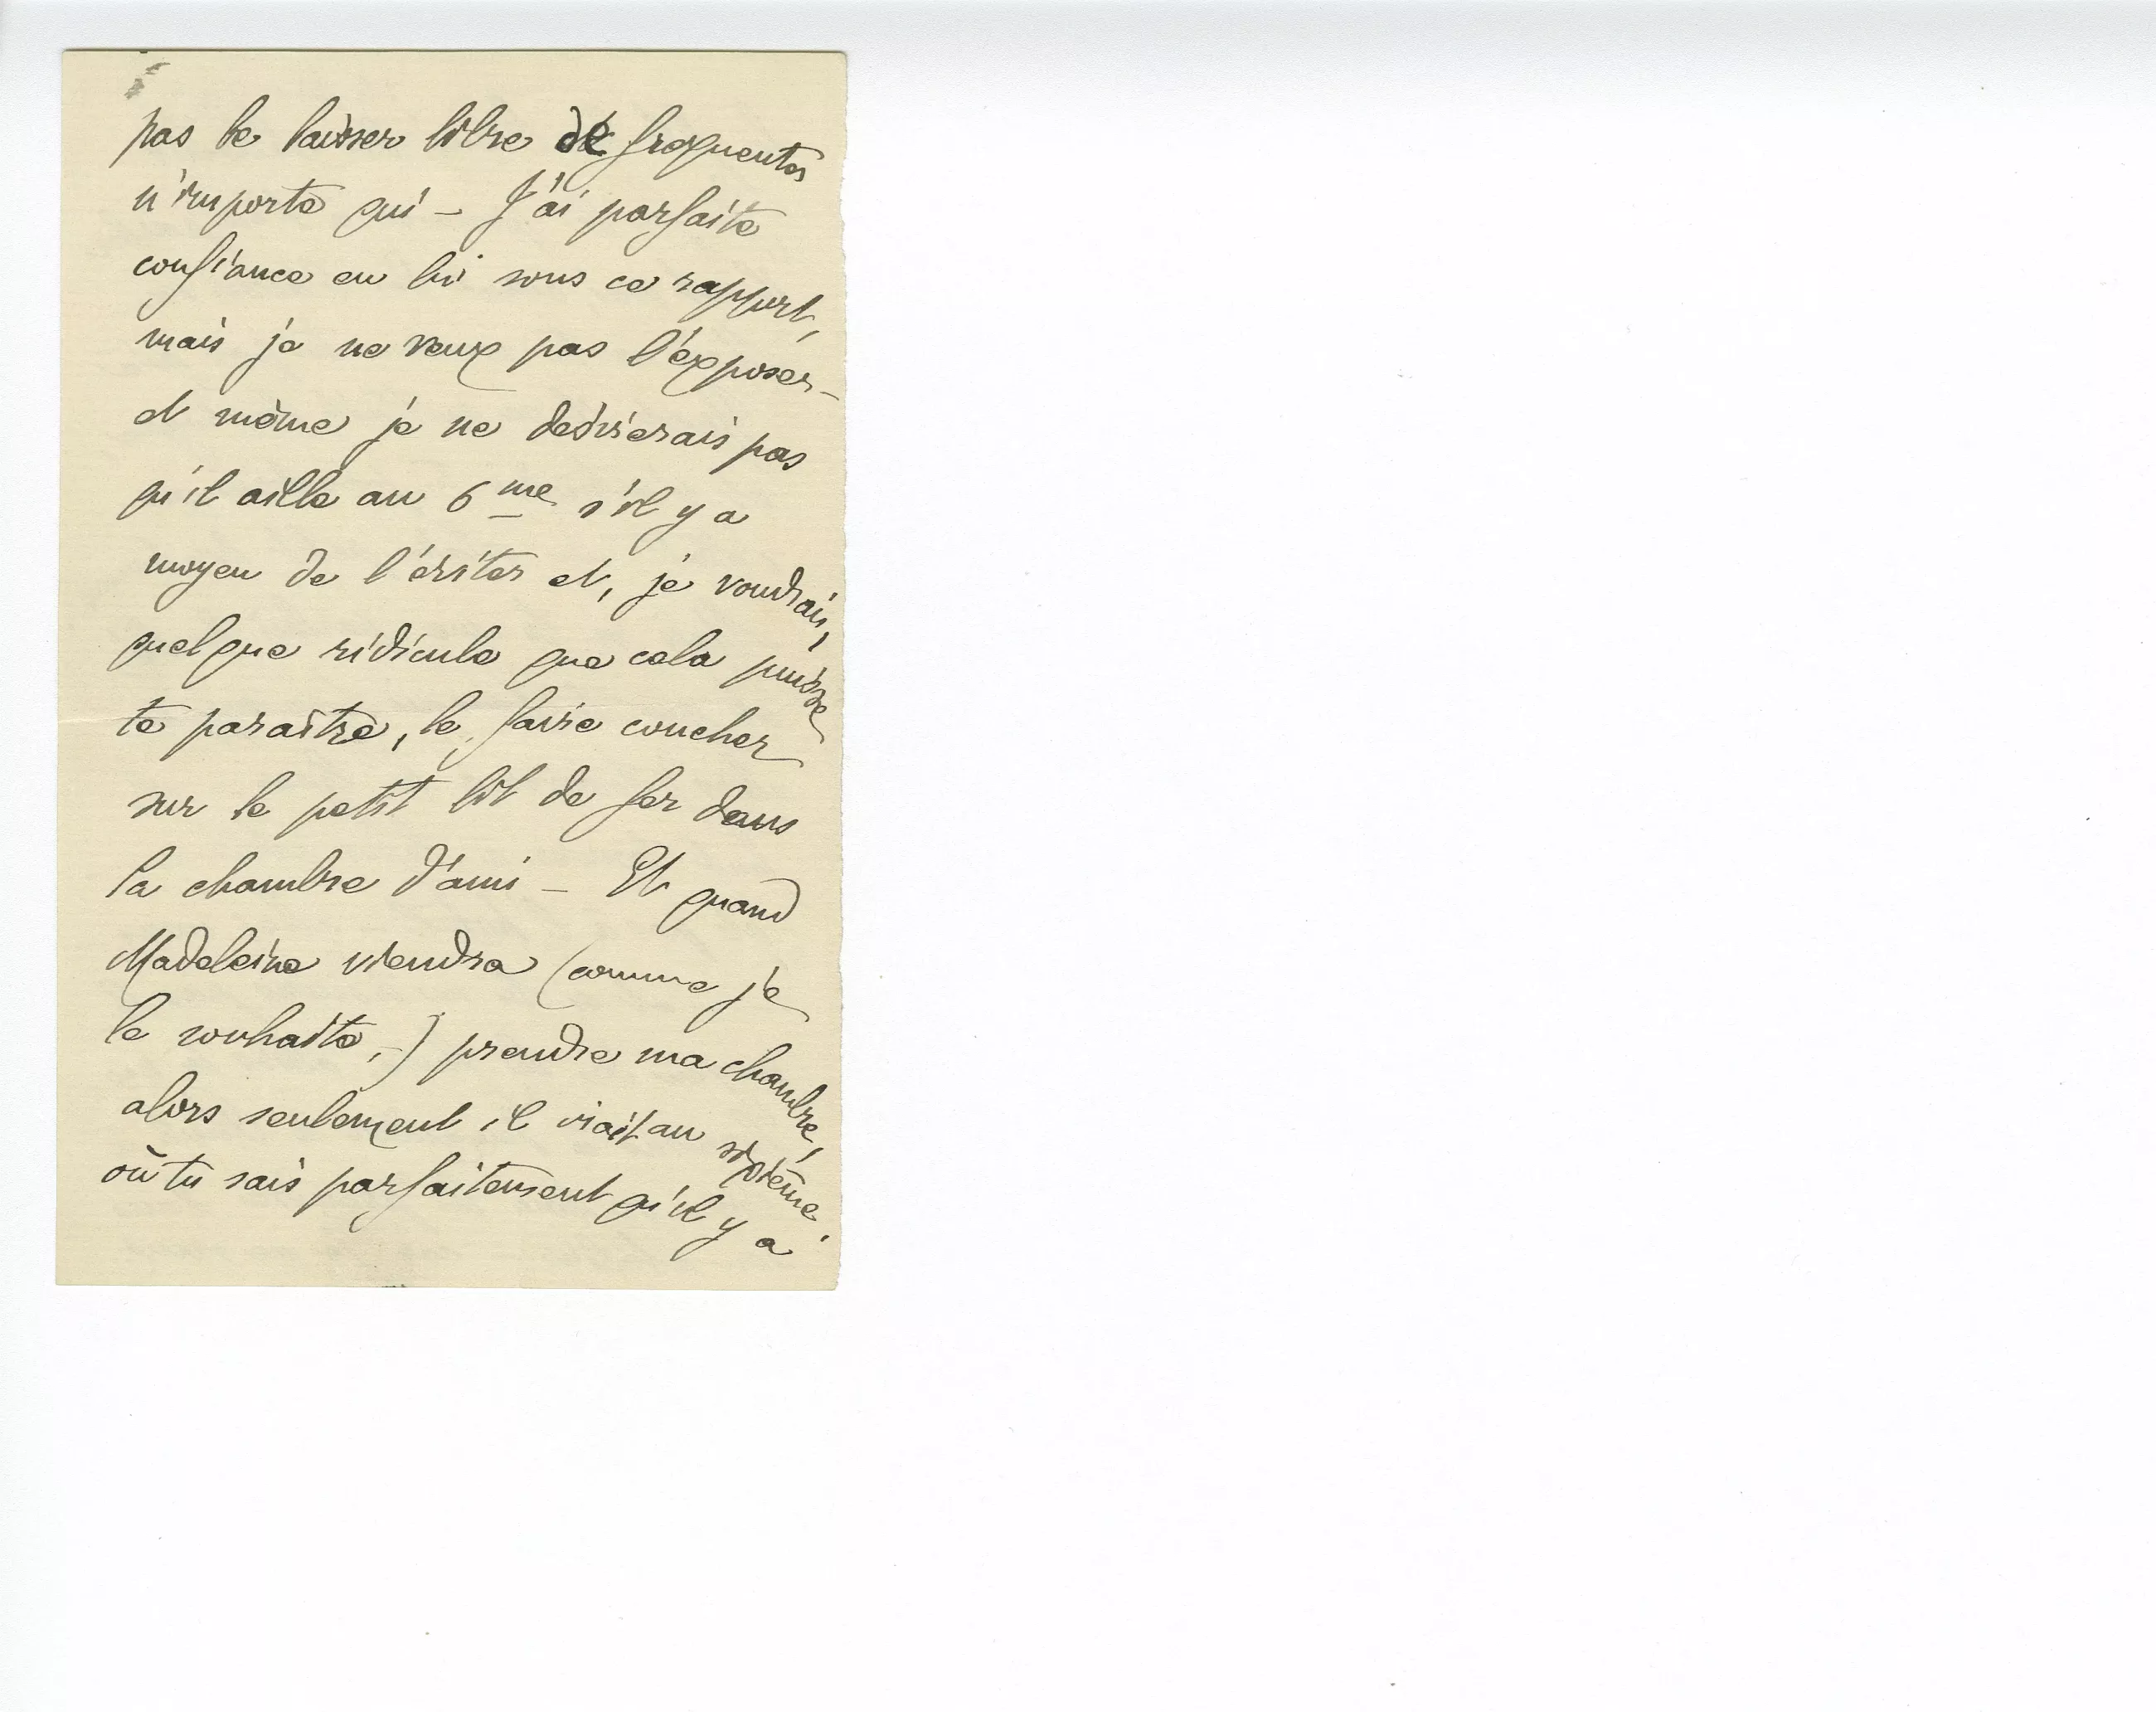 pas le laisser libre de frequenter
n'importe qui — J'ai parfaite
confiance en lui sous ce rapport,
mais je ne veux pas l'exposer —
et même je ne désirerais pas
qu'il aille au 6me s'il y a
moyen de l'éviter et, je voudrais,
quelque ridicule que cela puisse
te paraître, le faire coucher
sur le petit lit de fer dans
la chambre d'ami — Et quand
Madeleine viendra (comme je
le souhaite,-) prendre ma chambre,
alors seulement il irait au sixième,
où tu sais parfaitement qu'il y a